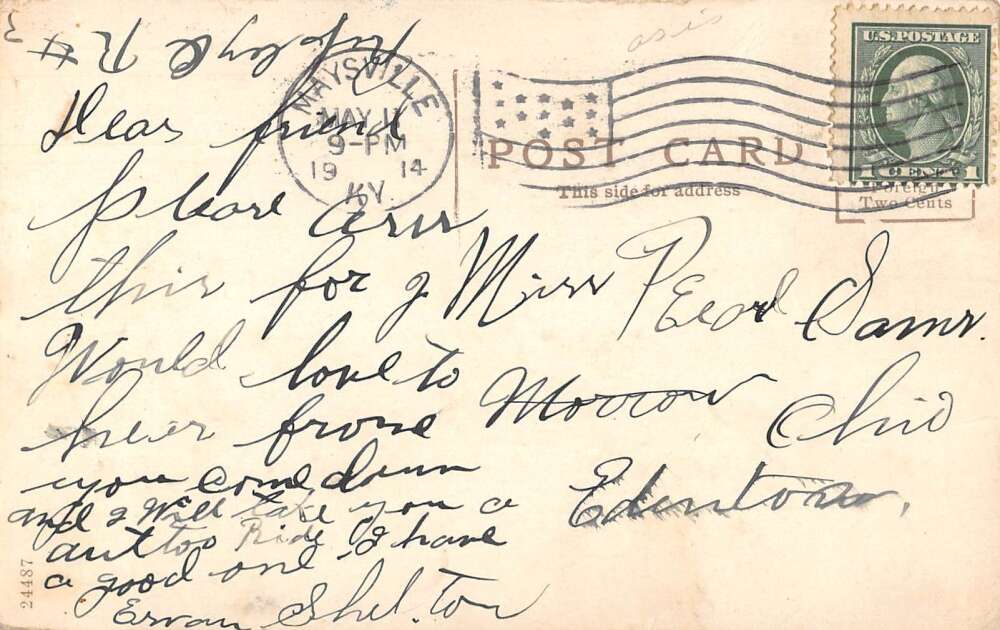 R # 3
Dear friend
please ansr
this for I
Would love to
heer frome
you come down
and I Will take you a
auttoo Ride I have
a good one
Ervan Shelton
MAYSVILLE
MAY 11
9-PM
19 14
KY.
as is
POST CARD
This side for address
U.S. POSTAGE
1 CENT 1
Foreign
Two Cents
Miss PEarl Sams.
Morrow Ohio
Edenton,
24487